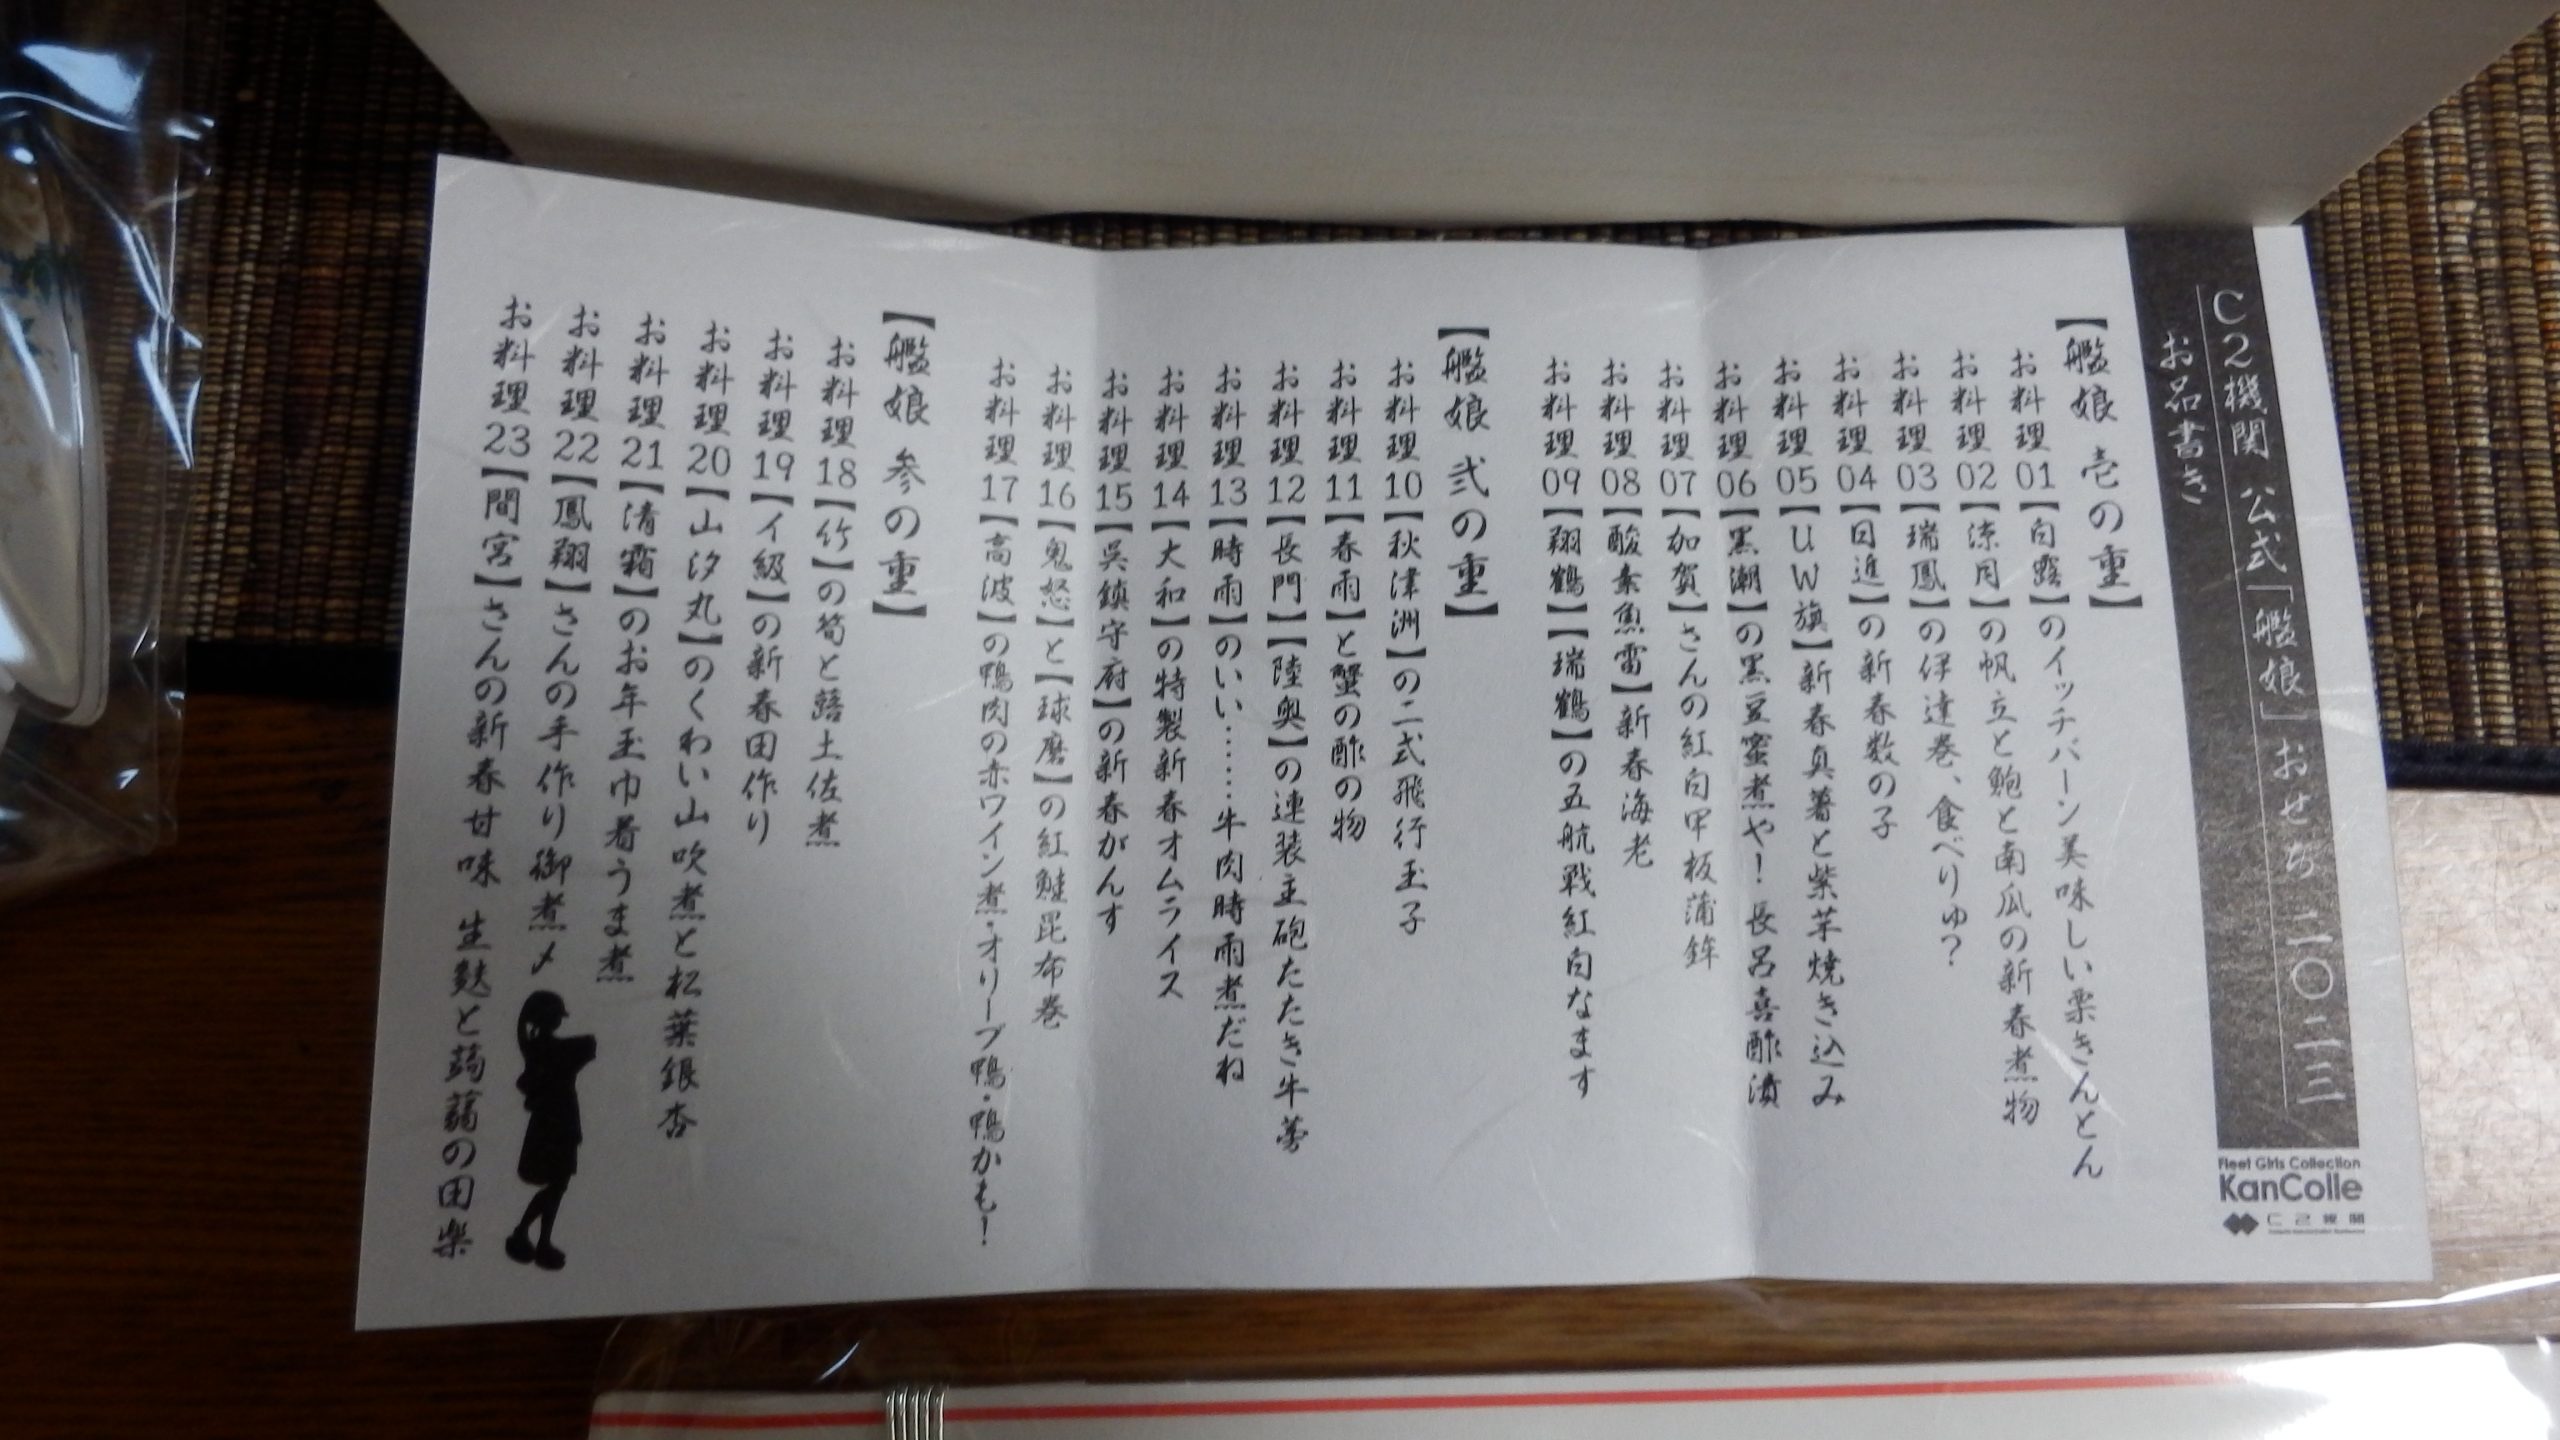 C2機関 公式「艦娘」おせち 二〇二三
お品書き
Fleet Girls Collection
KanColle
C2機関
【艦娘 壱の重】
お料理01【白露】のイッチバーン美味しい栗きんとん
お料理02【涼月】の帆立と鮑と南瓜の新春煮物
お料理03【瑞鳳】の伊達巻、食べりゅ?
お料理04【日進】の新春数の子
お料理05【UW旗】新春真薯と紫芋焼き込み
お料理06【黒潮】の黒豆蜜煮や! 長呂喜酢漬
お料理07【加賀】さんの紅白甲板蒲鉾
お料理08【酸素魚雷】新春海老
お料理09【翔鶴】【瑞鶴】の五航戦紅白なます
【艦娘 弐の重】
お料理10【秋津洲】の二式飛行玉子
お料理11【春雨】と蟹の酢の物
お料理12【長門】【陸奥】の連装主砲たたき牛蒡
お料理13【時雨】のいい……牛肉時雨煮だね
お料理14【大和】の特製新春オムライス
お料理15【呉鎮守府】の新春がんす
お料理16【鬼怒】と【球磨】の紅鮭昆布巻
お料理17【高波】の鴨肉の赤ワイン煮・オリーブ鴨・鴨かも!
【艦娘 参の重】
お料理18【竹】の筍と蕗土佐煮
お料理19【イ級】の新春田作り
お料理20【山汐丸】のくわい山吹煮と松葉銀杏
お料理21【清霜】のお年玉巾着うま煮
お料理22【鳳翔】さんの手作り御煮〆
お料理23【間宮】さんの新春甘味 生麩と蒟蒻の田楽